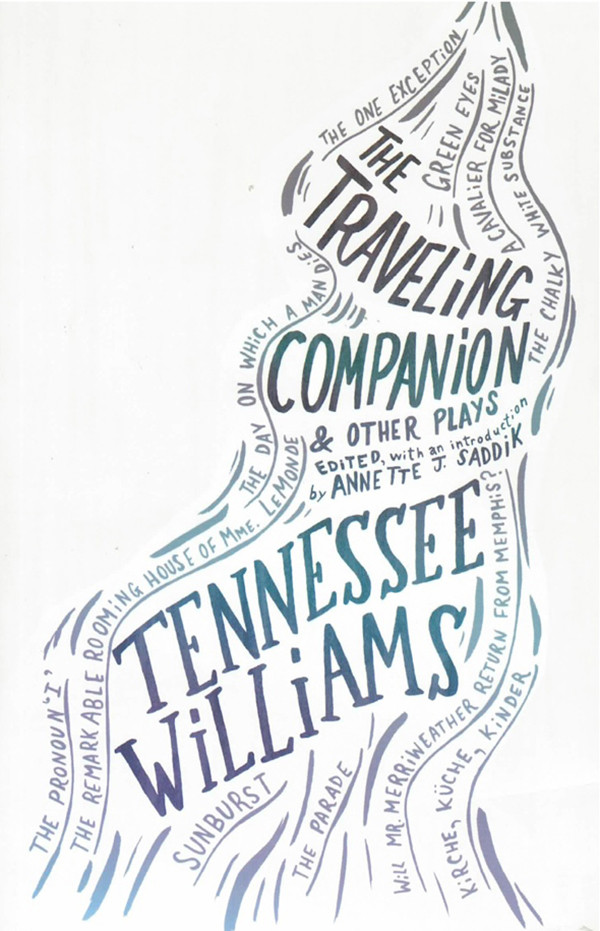 THE ONE EXCEPTION
GREEN EYES
A CAVALIER FOR MILADY
A WHITE SUBSTANCE
THE CHALKY
THE
TRAVELING
COMPANION
& OTHER PLAYS
EDITED, with an introduction
by ANNETTE J. SADDIK
THE DAY ON WHICH A MAN DIES
TENNESSEE
WILLIAMS
THE PRONOUN "I"
THE REMARKABLE ROOMING HOUSE OF MME. LEMONDE
SUNBURST
THE PARADE
WILL MR. MERRIWEATHER RETURN FROM MEMPHIS?
KIRCHE, KÜCHE, KINDER